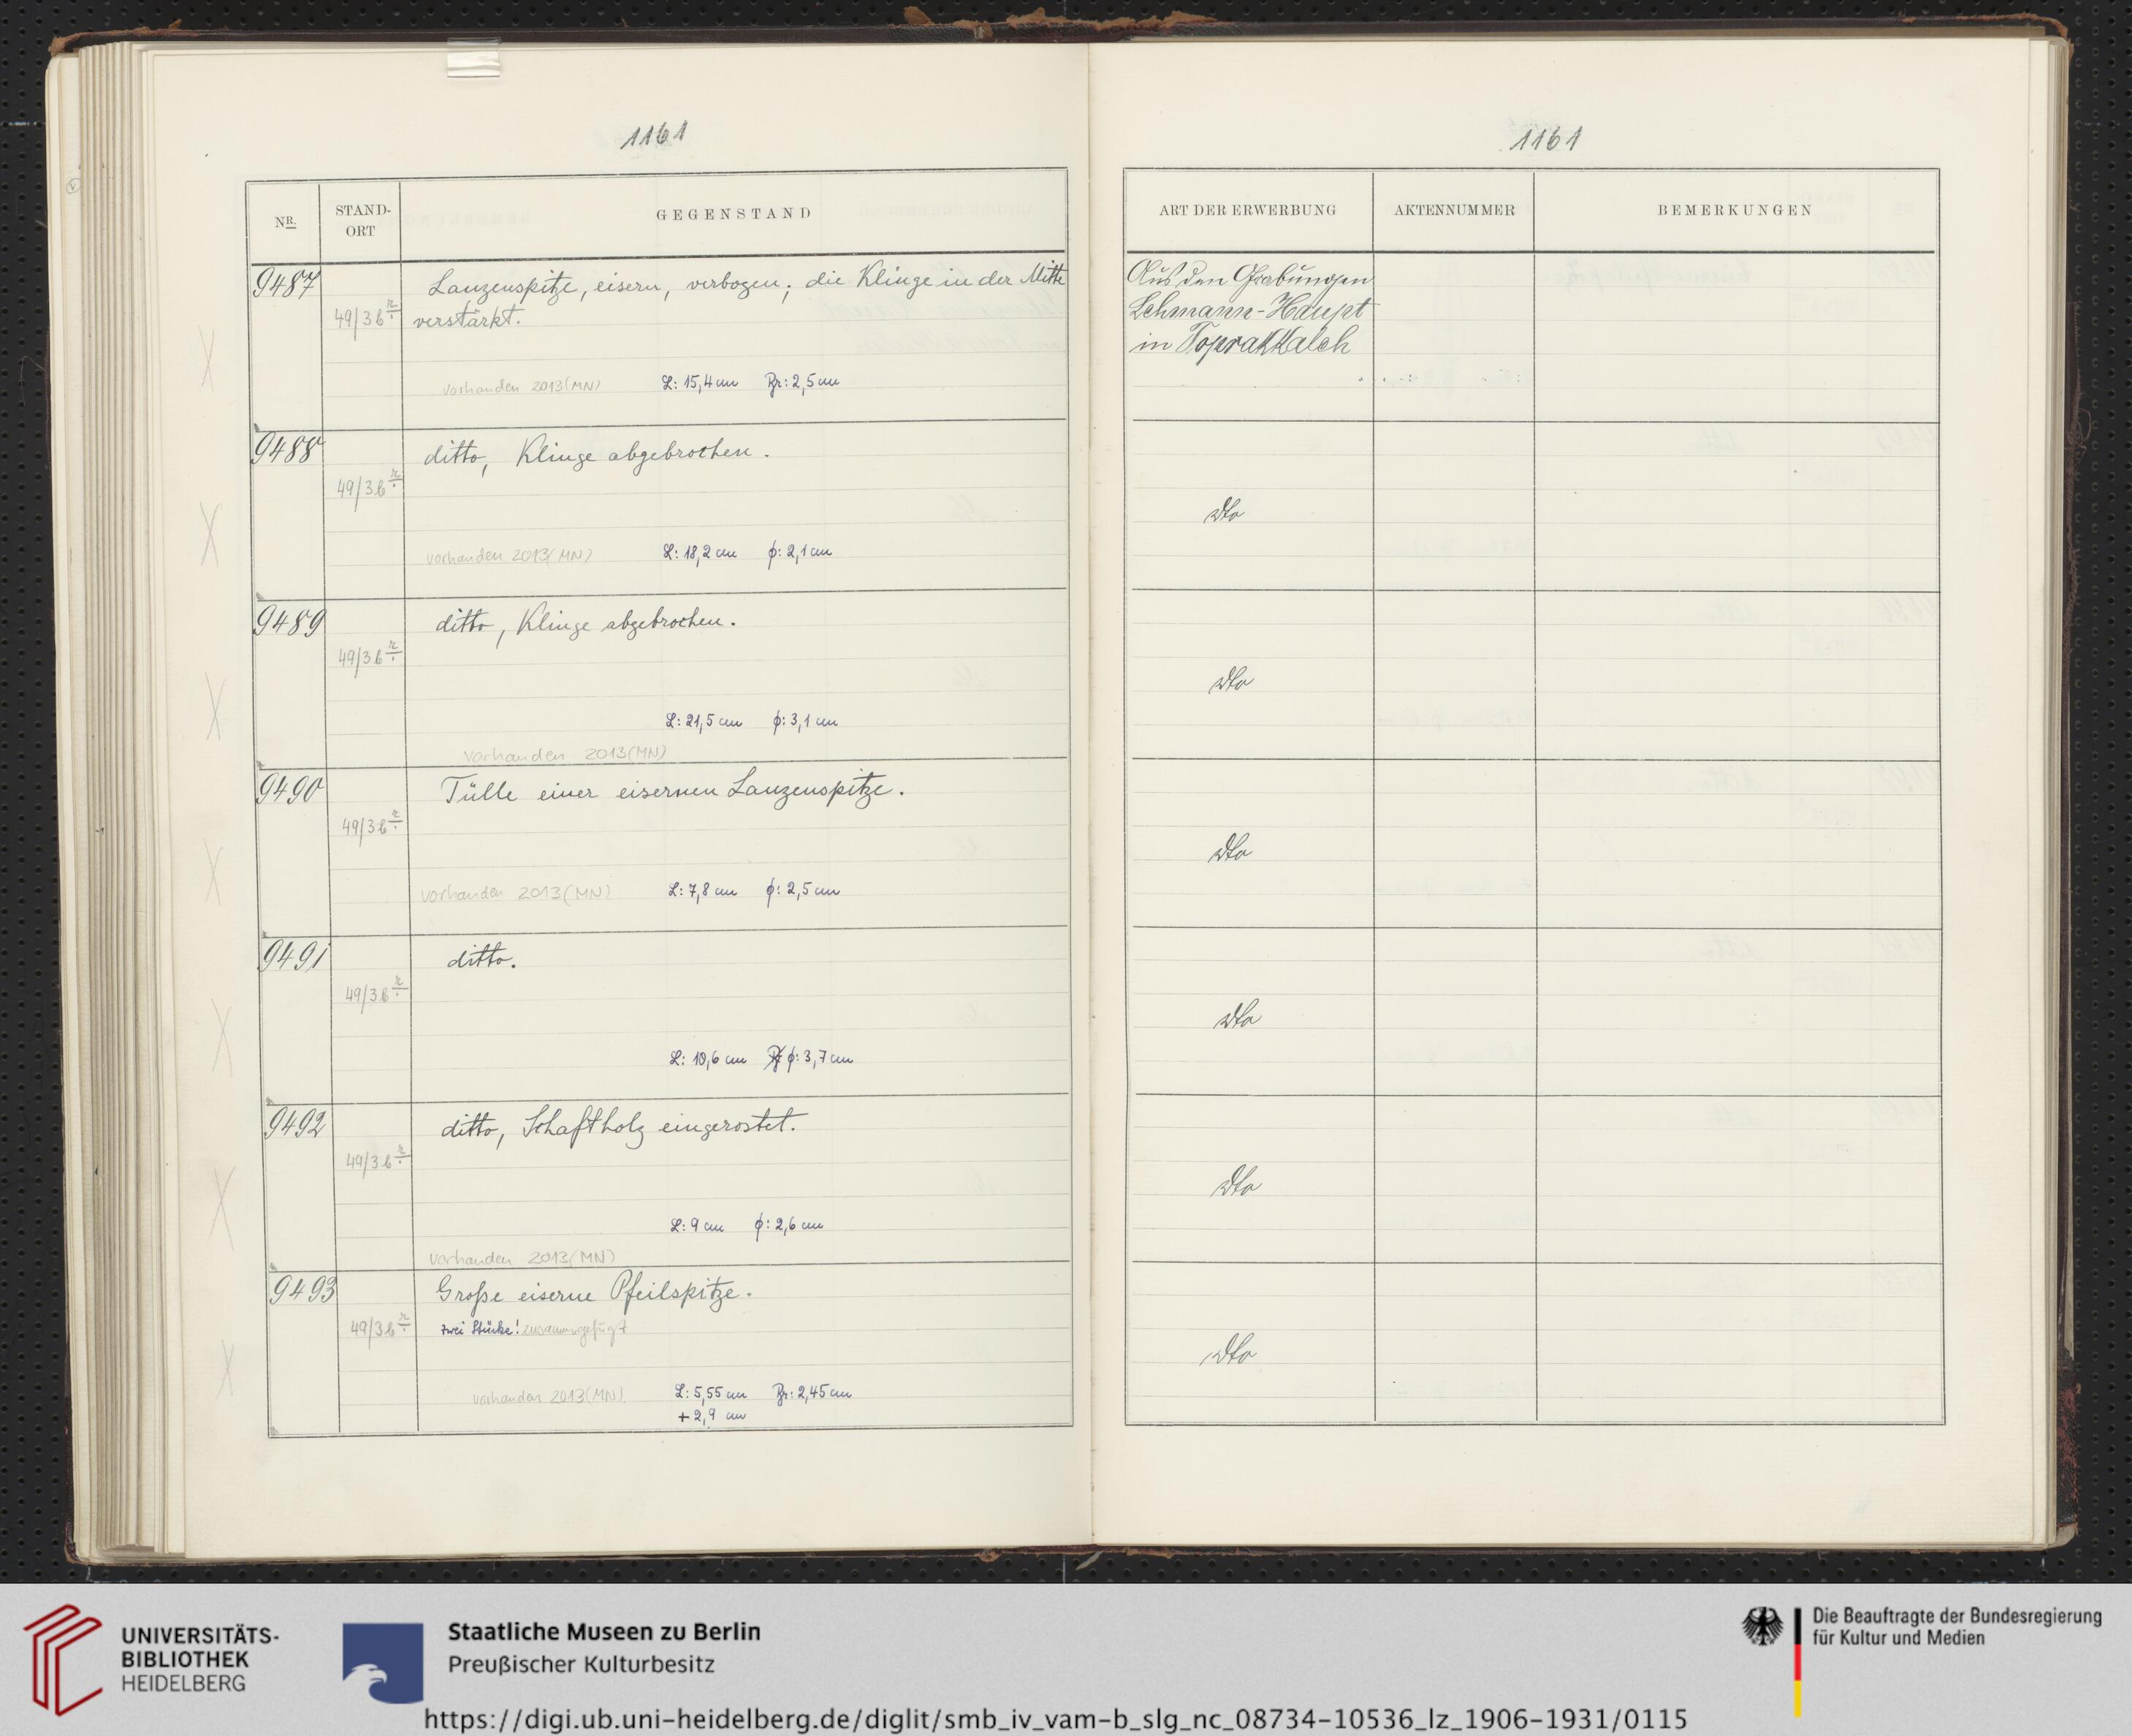 1161
NR.
STAND-
ORT
GEGENSTAND
9487
Lanzenspitze, eisern, verbogen; die Klinge in der Mitte
49/3b
verstärkt.
vorhanden 2013 (MN) L: 15,4 cm Br: 2,5 cm
9488
ditto, Klinge abgebrochen.
49/3b
vorhanden 2013 (MN) L: 18,2 cm ϕ: 2,1 cm
9489
ditto, Klinge abgebrochen.
49/3b
L: 21,5 cm ϕ: 3,1 cm
vorhanden 2013 (MN)
9490
Tülle einer eisernen Lanzenspitze.
49/3b
vorhanden 2013 (MN) L: 7,8 cm ϕ: 2,5 cm
9491
ditto.
49/3b
L: 10,6 cm ϕ: 3,7 cm
9492
ditto, Schaftholz eingerostet.
49/3b
L: 9 cm ϕ: 2,6 cm
vorhanden 2013 (MN)
9493
Große eiserne Pfeilspitze.
49/3b
zwei Stücke! zusammengefügt
vorhanden 2013 (MN) L: 5,55 cm Br: 2,45 cm
+ 2,9 cm
1161
ART DER ERWERBUNG
AKTENNUMMER
BEMERKUNGEN
Aus den Grabungen
Lehmann-Haupt
in Toprakkaleh
dto
dto
dto
dto
dto
dto
UNIVERSITÄTS-
BIBLIOTHEK
HEIDELBERG
Staatliche Museen zu Berlin
Preußischer Kulturbesitz
Die Beauftragte der Bundesregierung
für Kultur und Medien
https://digi.ub.uni-heidelberg.de/diglit/smb_iv_vam-b_slg_nc_08734-10536_lz_1906-1931/0115